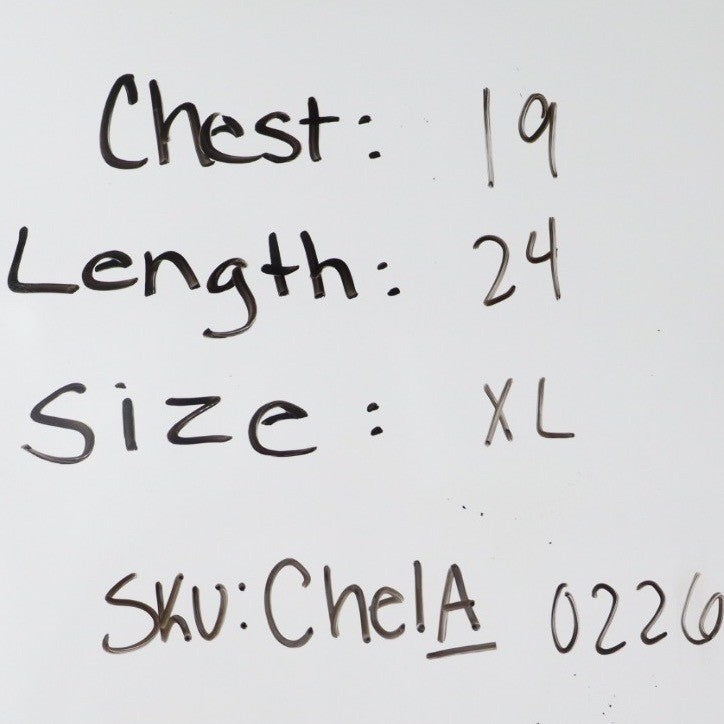 Chest: 19
Length: 24
Size: XL
SKU: ChelA 0226